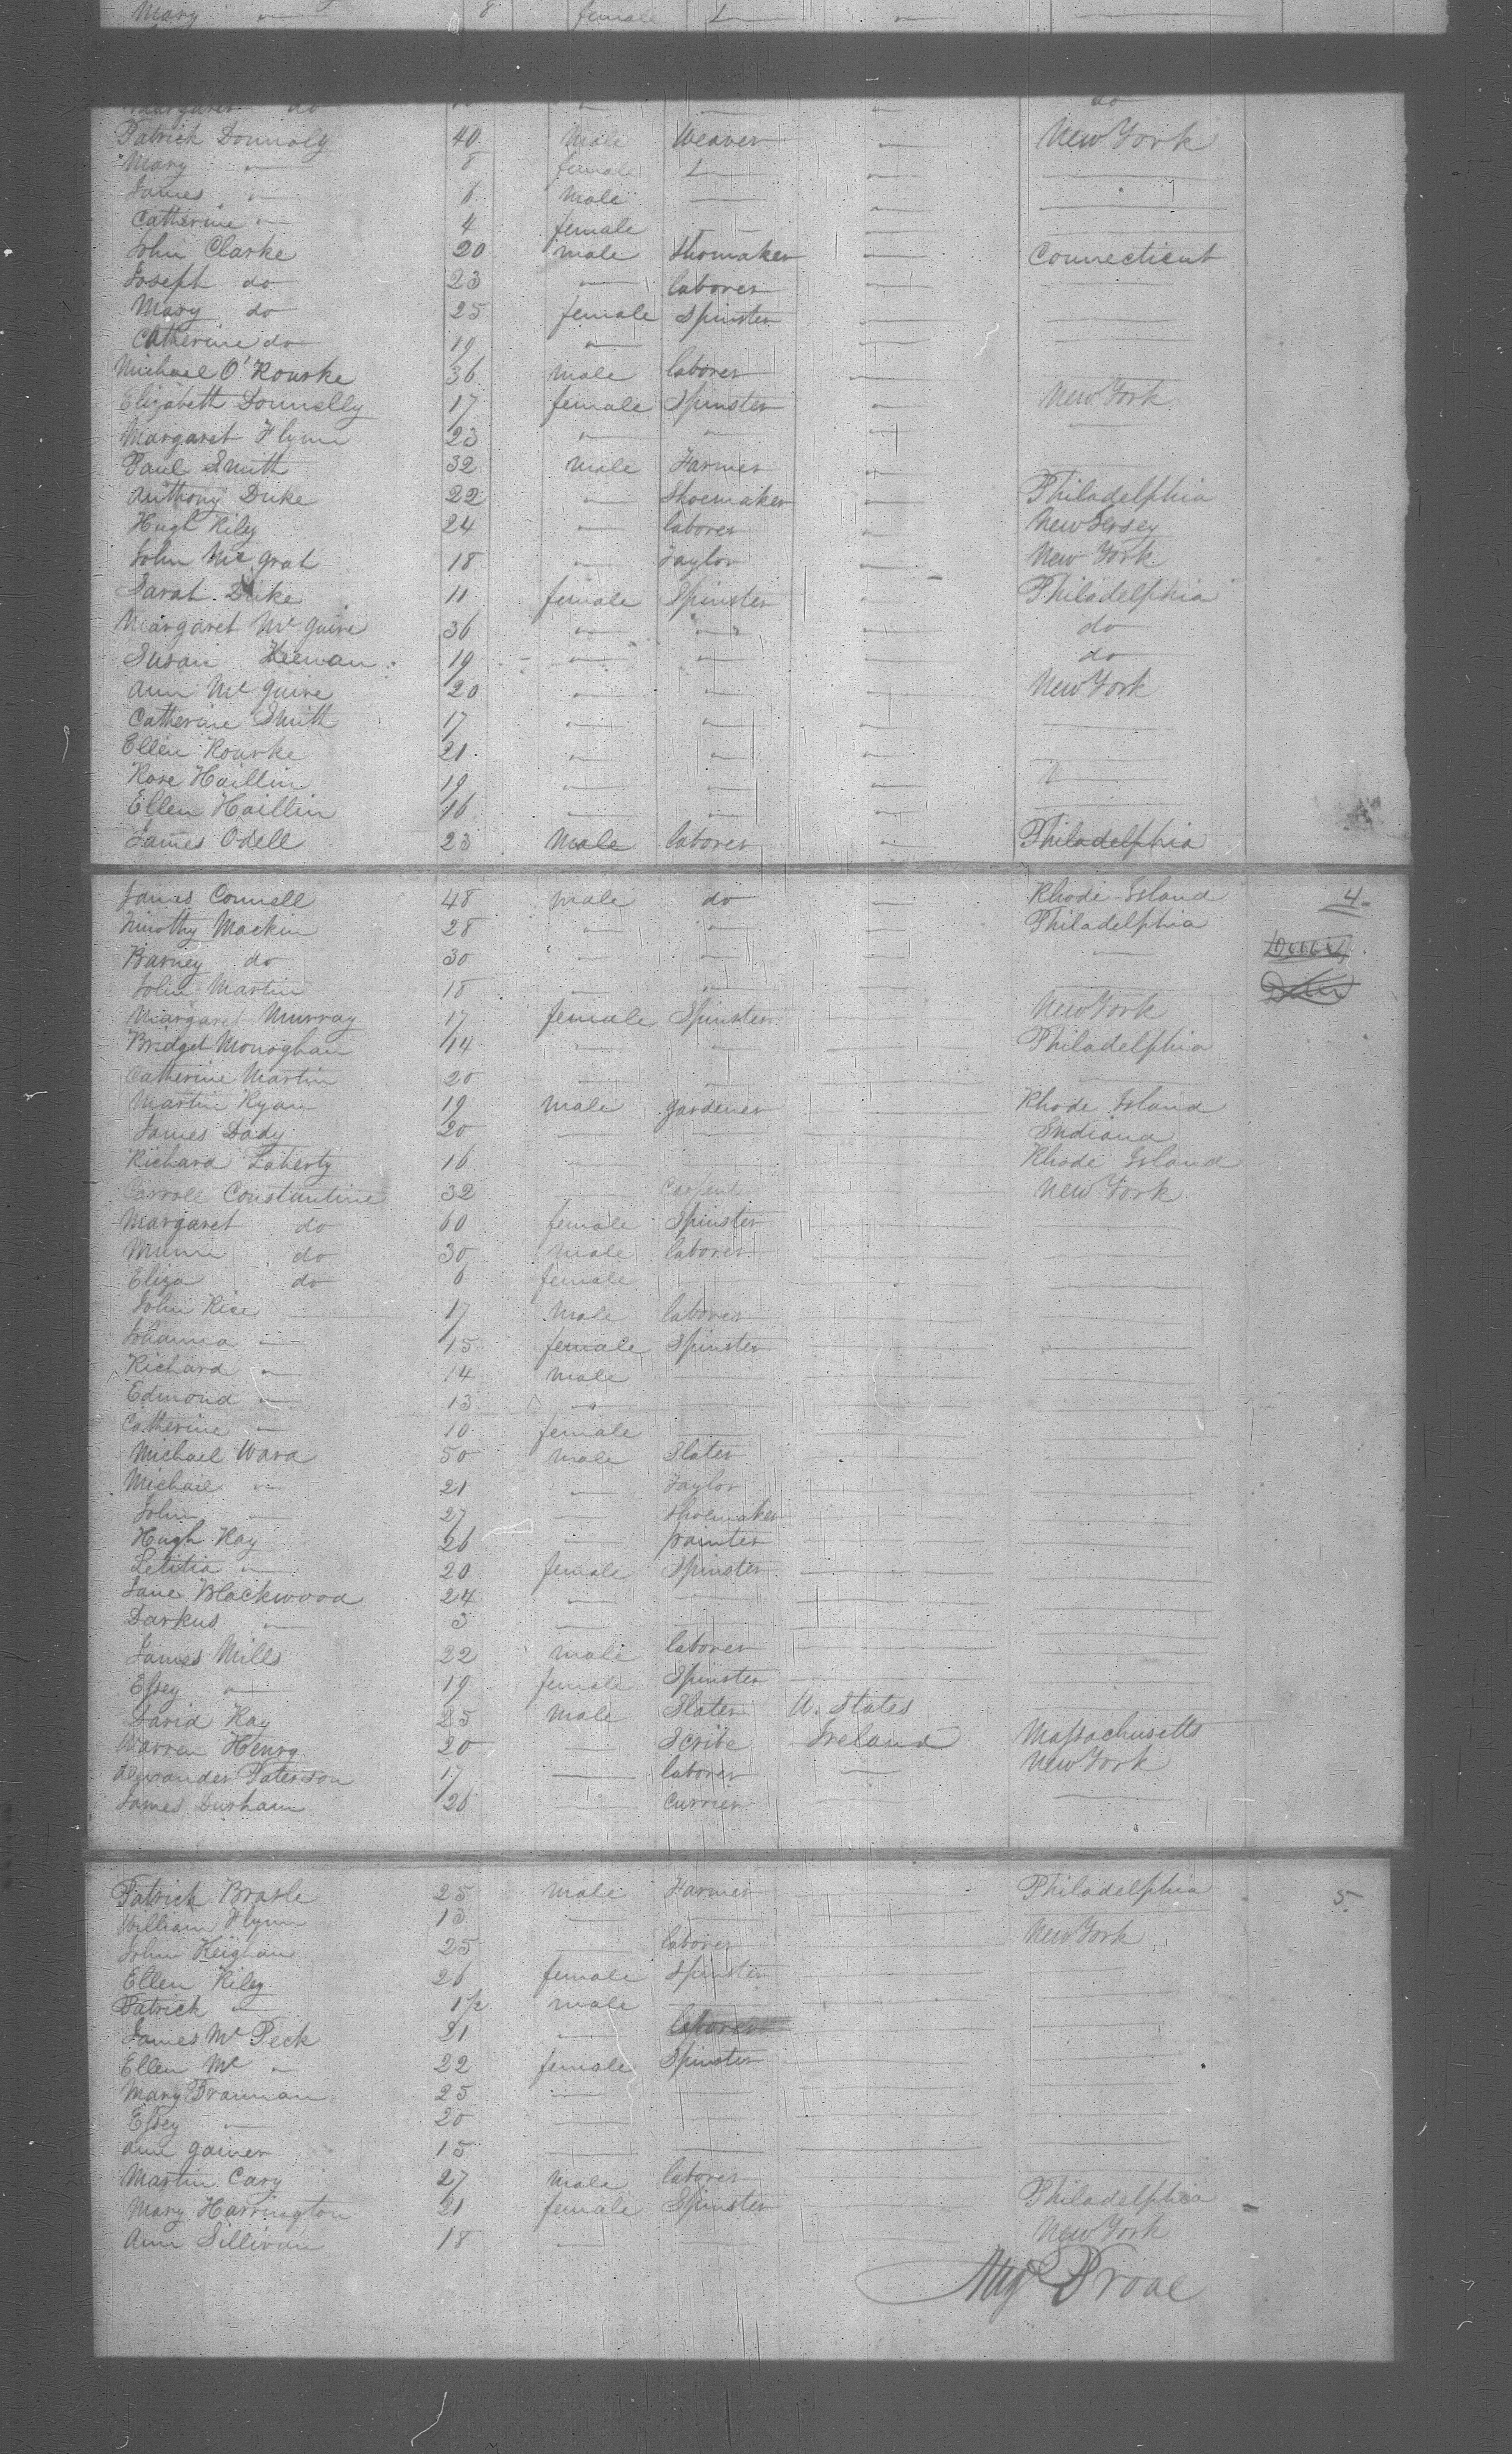 Mary 8 female
Margaret do do
Patrick Donnoly 40 Male Weaver New York
Mary 8 female
James 6 Male
Catherine 4 female
John Clarke 20 male Shomaker Connecticut
Joseph do 23 laborer
Mary do 25 female Spinster
Catherine do 19
Michael O'Rourke 36 male laborer
Elizabeth Donnelly 17 female Spinster New York
Margaret Flynn 23
Paul Smith 32 male Farmer
Anthony Duke 22 Shoemaker Philadelphia
Hugh Riley 24 laborer New Jersey
John Mc Grat 18 Taylor New York
Sarah Duke 11 female Spinster Philadelphia
Margaret Mc Guire 36 do
Susan Keenan 19 do
Ann Mc Guire 20 New York
Catherine Smith 17
Ellen Rourke 21
Rose Haillin 19
Ellen Haillin 16
James Odell 23 Male laborer Philadelphia
James Connell 48 male do Rhode Island 4
Timothy Mackin 28 Philadelphia
Barney do 30
John Martin 18
Margaret Murray 17 female Spinster New York
Bridget Monoghan 14 Philadelphia
Catherine Martin 20
Martin Ryan 19 male gardener Rhode Island
James Dady 20 Indiana
Richard Laherty 16 Rhode Island
Carroll Constantine 32 Carpent New York
Margaret do 60 female Spinster
do 30 male laborer
Eliza do 6 female
John Rice 17 Male laborer
Johanna 15 female Spinster
Richard 14 male
Edmond 13
Catherine 10 female
Michael Ward 50 male Slater
Michael 21 Taylor
John 27 Shoemaker
Hugh Kay 26 painter
Letitia 20 female Spinster
Jane Blackwood 24
Darkus 3
James Mills 22 male laborer
Essey 19 female Spinster
David Kay 25 Male Slater U. States
Warren Henry 20 Scribe Ireland Massachusetts
Alexander Paterson 17 laborer New York
James Durham 26 Currier
Patrick Brasle 25 male Farmer Philadelphia 5
William Flynn 13
John Keighan 25 laborer New York
Ellen Riley 26 female Spinster
Patrick 1½ male
James Mc Peck 21 laborer
Ellen Mc 22 female Spinster
Mary Brannan 25
Essey 20
Ann Gainer 15
Martin Cary 27 Male laborer
Mary Harrington 21 female Spinster Philadelphia
Ann Sillivan 18 New York